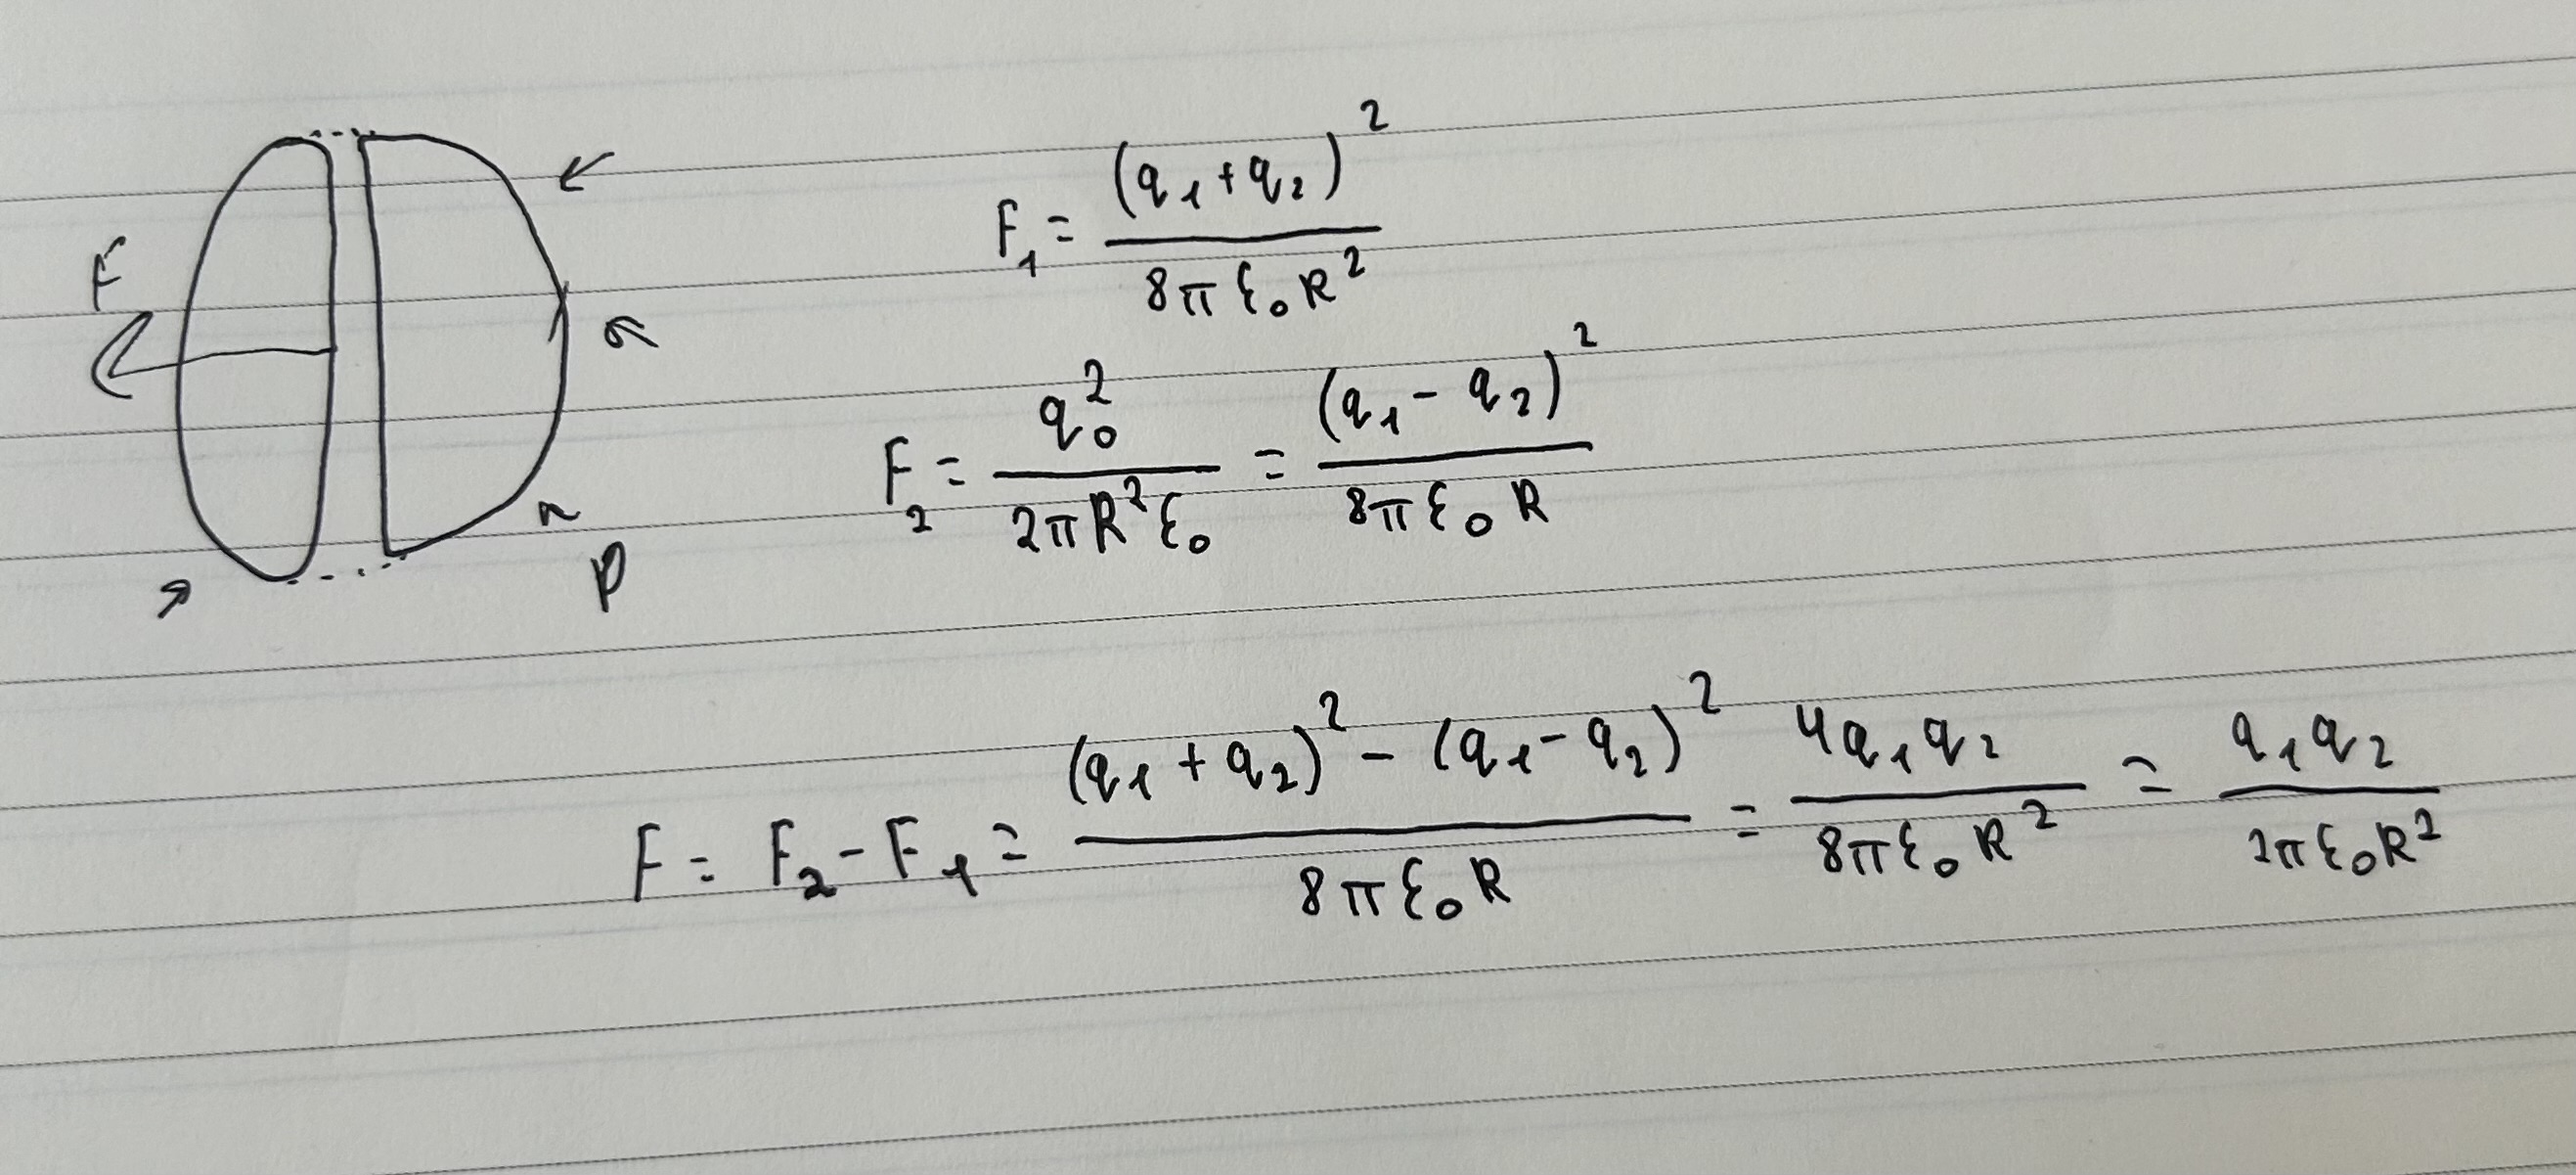 F
P
F₁ = (q₁+q₂)² / 8πε₀R²
F₂ = q₀² / 2πR²ε₀ = (q₁-q₂)² / 8πε₀R
F = F₂ - F₁ = (q₁+q₂)² - (q₁-q₂)² / 8πε₀R = 4q₁q₂ / 8πε₀R² = q₁q₂ / 2πε₀R²